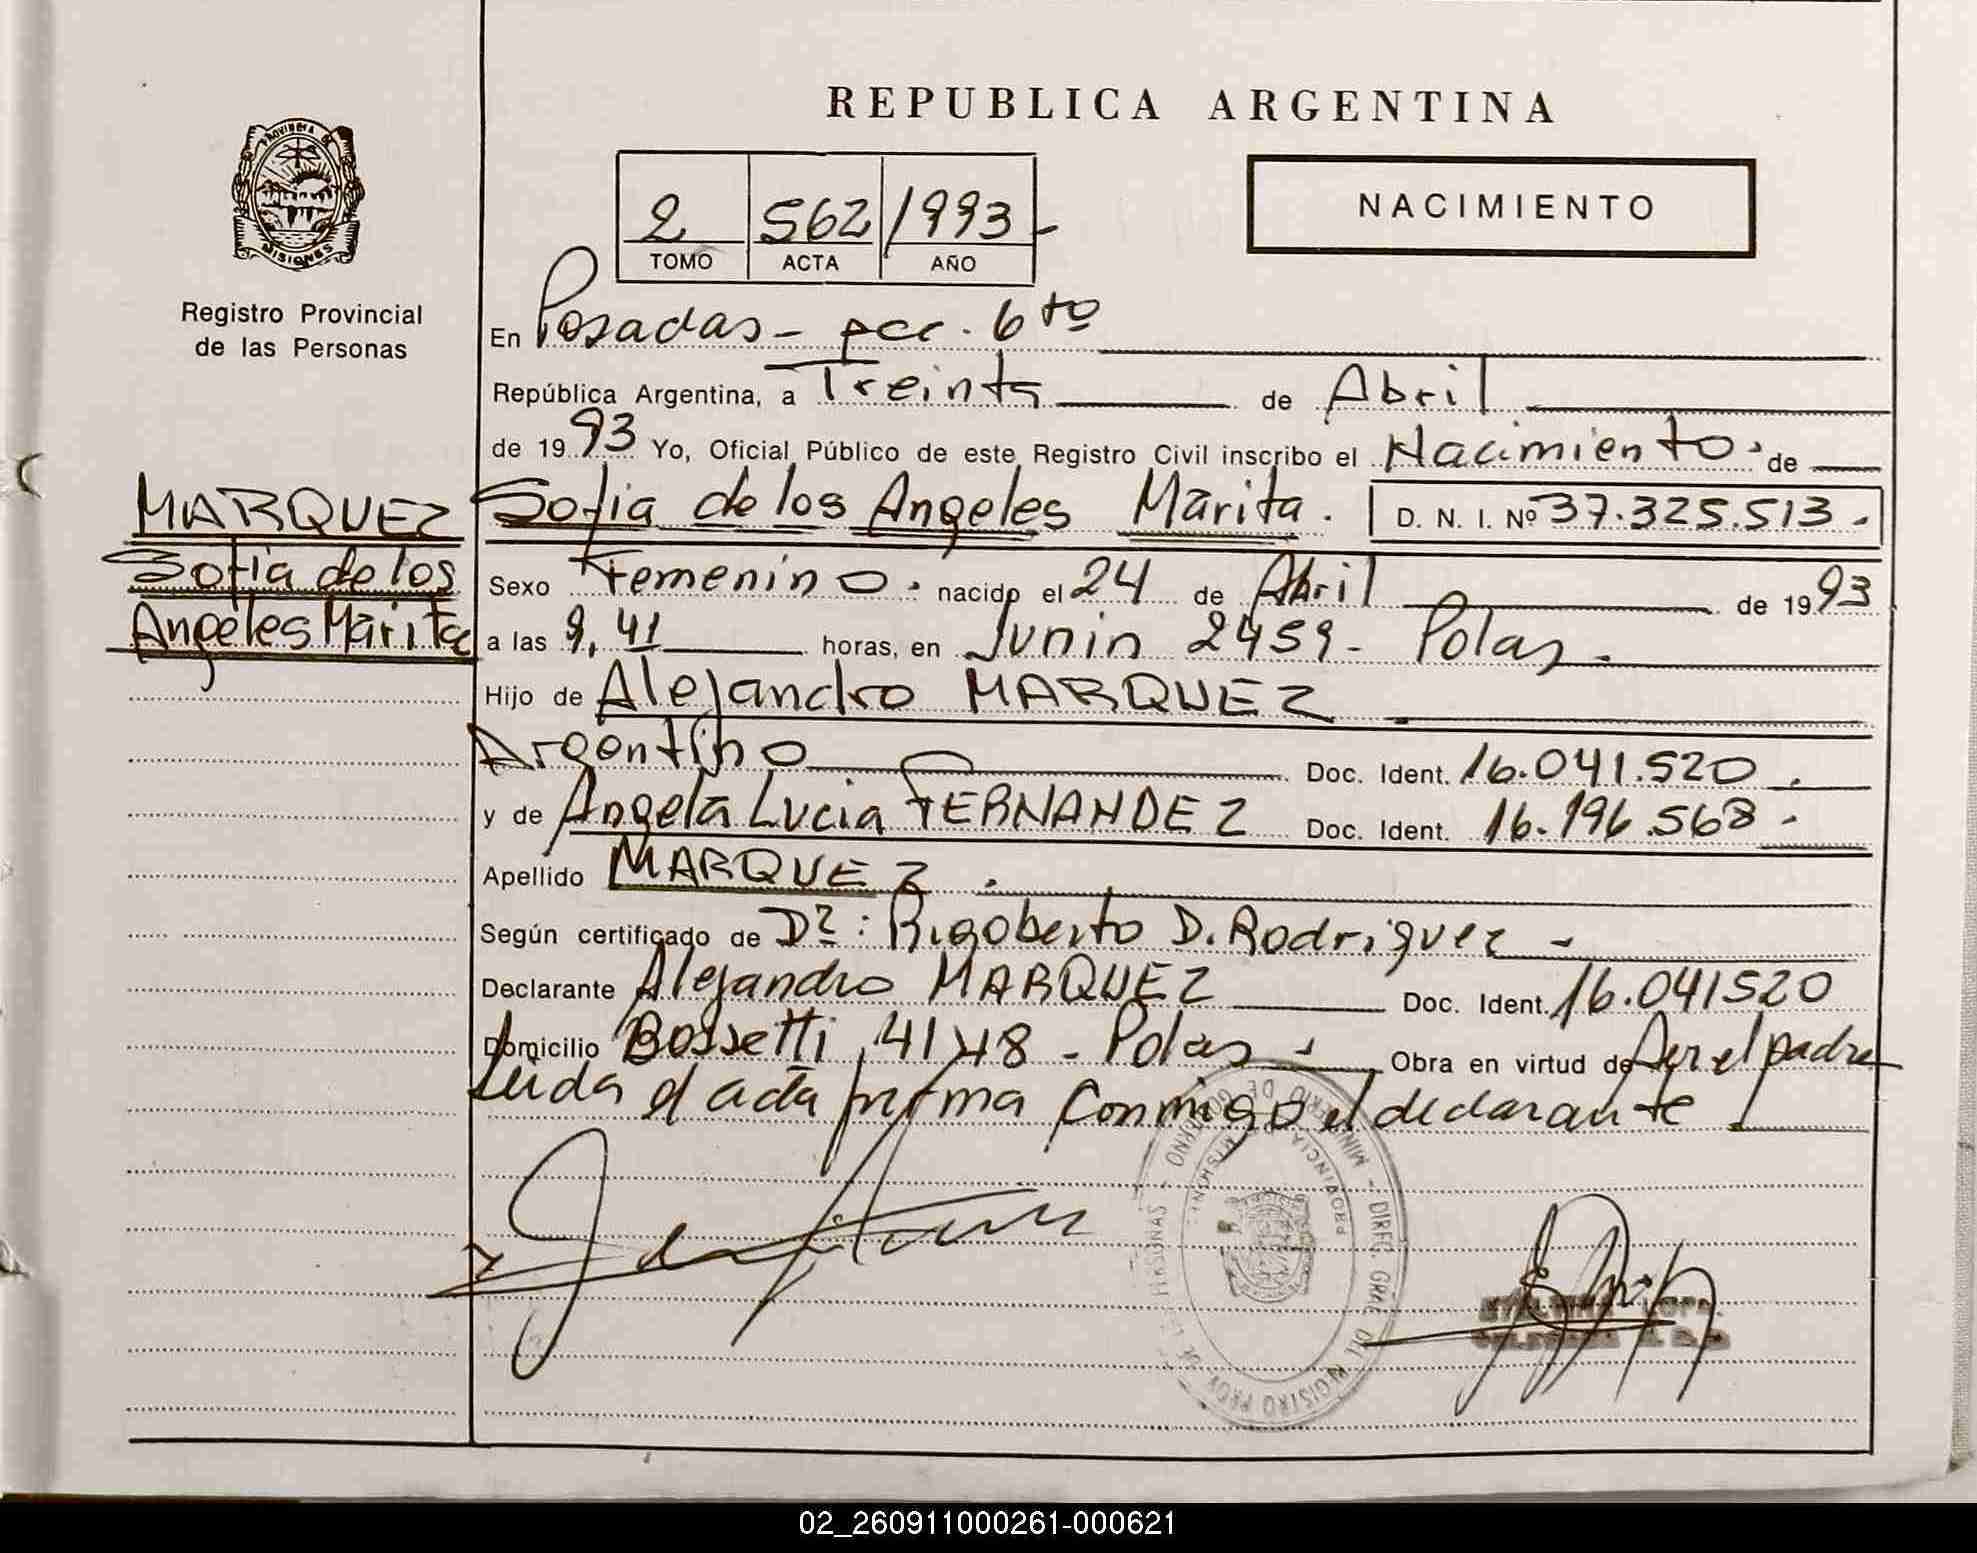 REPUBLICA ARGENTINA
PROVINCIA DE
MISIONES
Registro Provincial
de las Personas
2 562 1993 -
TOMO ACTA AÑO
NACIMIENTO
En Posadas - 6 to
República Argentina, a Treinta de Abril
de 19 93 Yo, Oficial Público de este Registro Civil inscribo el Nacimiento. de
MARQUEZ
Sofia de los
Angeles Marita
Sofia de los Angeles Marita. D. N. I. Nº 37.325.513.
Sexo Femenino. nacido el 24 de Abril de 19 93
a las 9,41 horas, en Junin 2459 - Pdas.
Hijo de Alejandro MARQUEZ.
Argentino Doc. Ident. 16.041.520.
y de Angela Lucia FERNANDEZ Doc. Ident. 16.196.568.-
Apellido MARQUEZ.
Según certificado de Dr: Rigoberto D. Rodriguez -
Declarante Alejandro MARQUEZ Doc. Ident. 16.041520
Domicilio Bossetti 4148 - Pdas - Obra en virtud de Ser el padre
Leida el acta firma conmigo el declarante
MINISTERIO DE GOBIERNO - DIREC. GRAL. DEL REGISTRO PROV. DE LAS PERSONAS -
PROVINCIA DE MISIONES
02_260911000261-000621